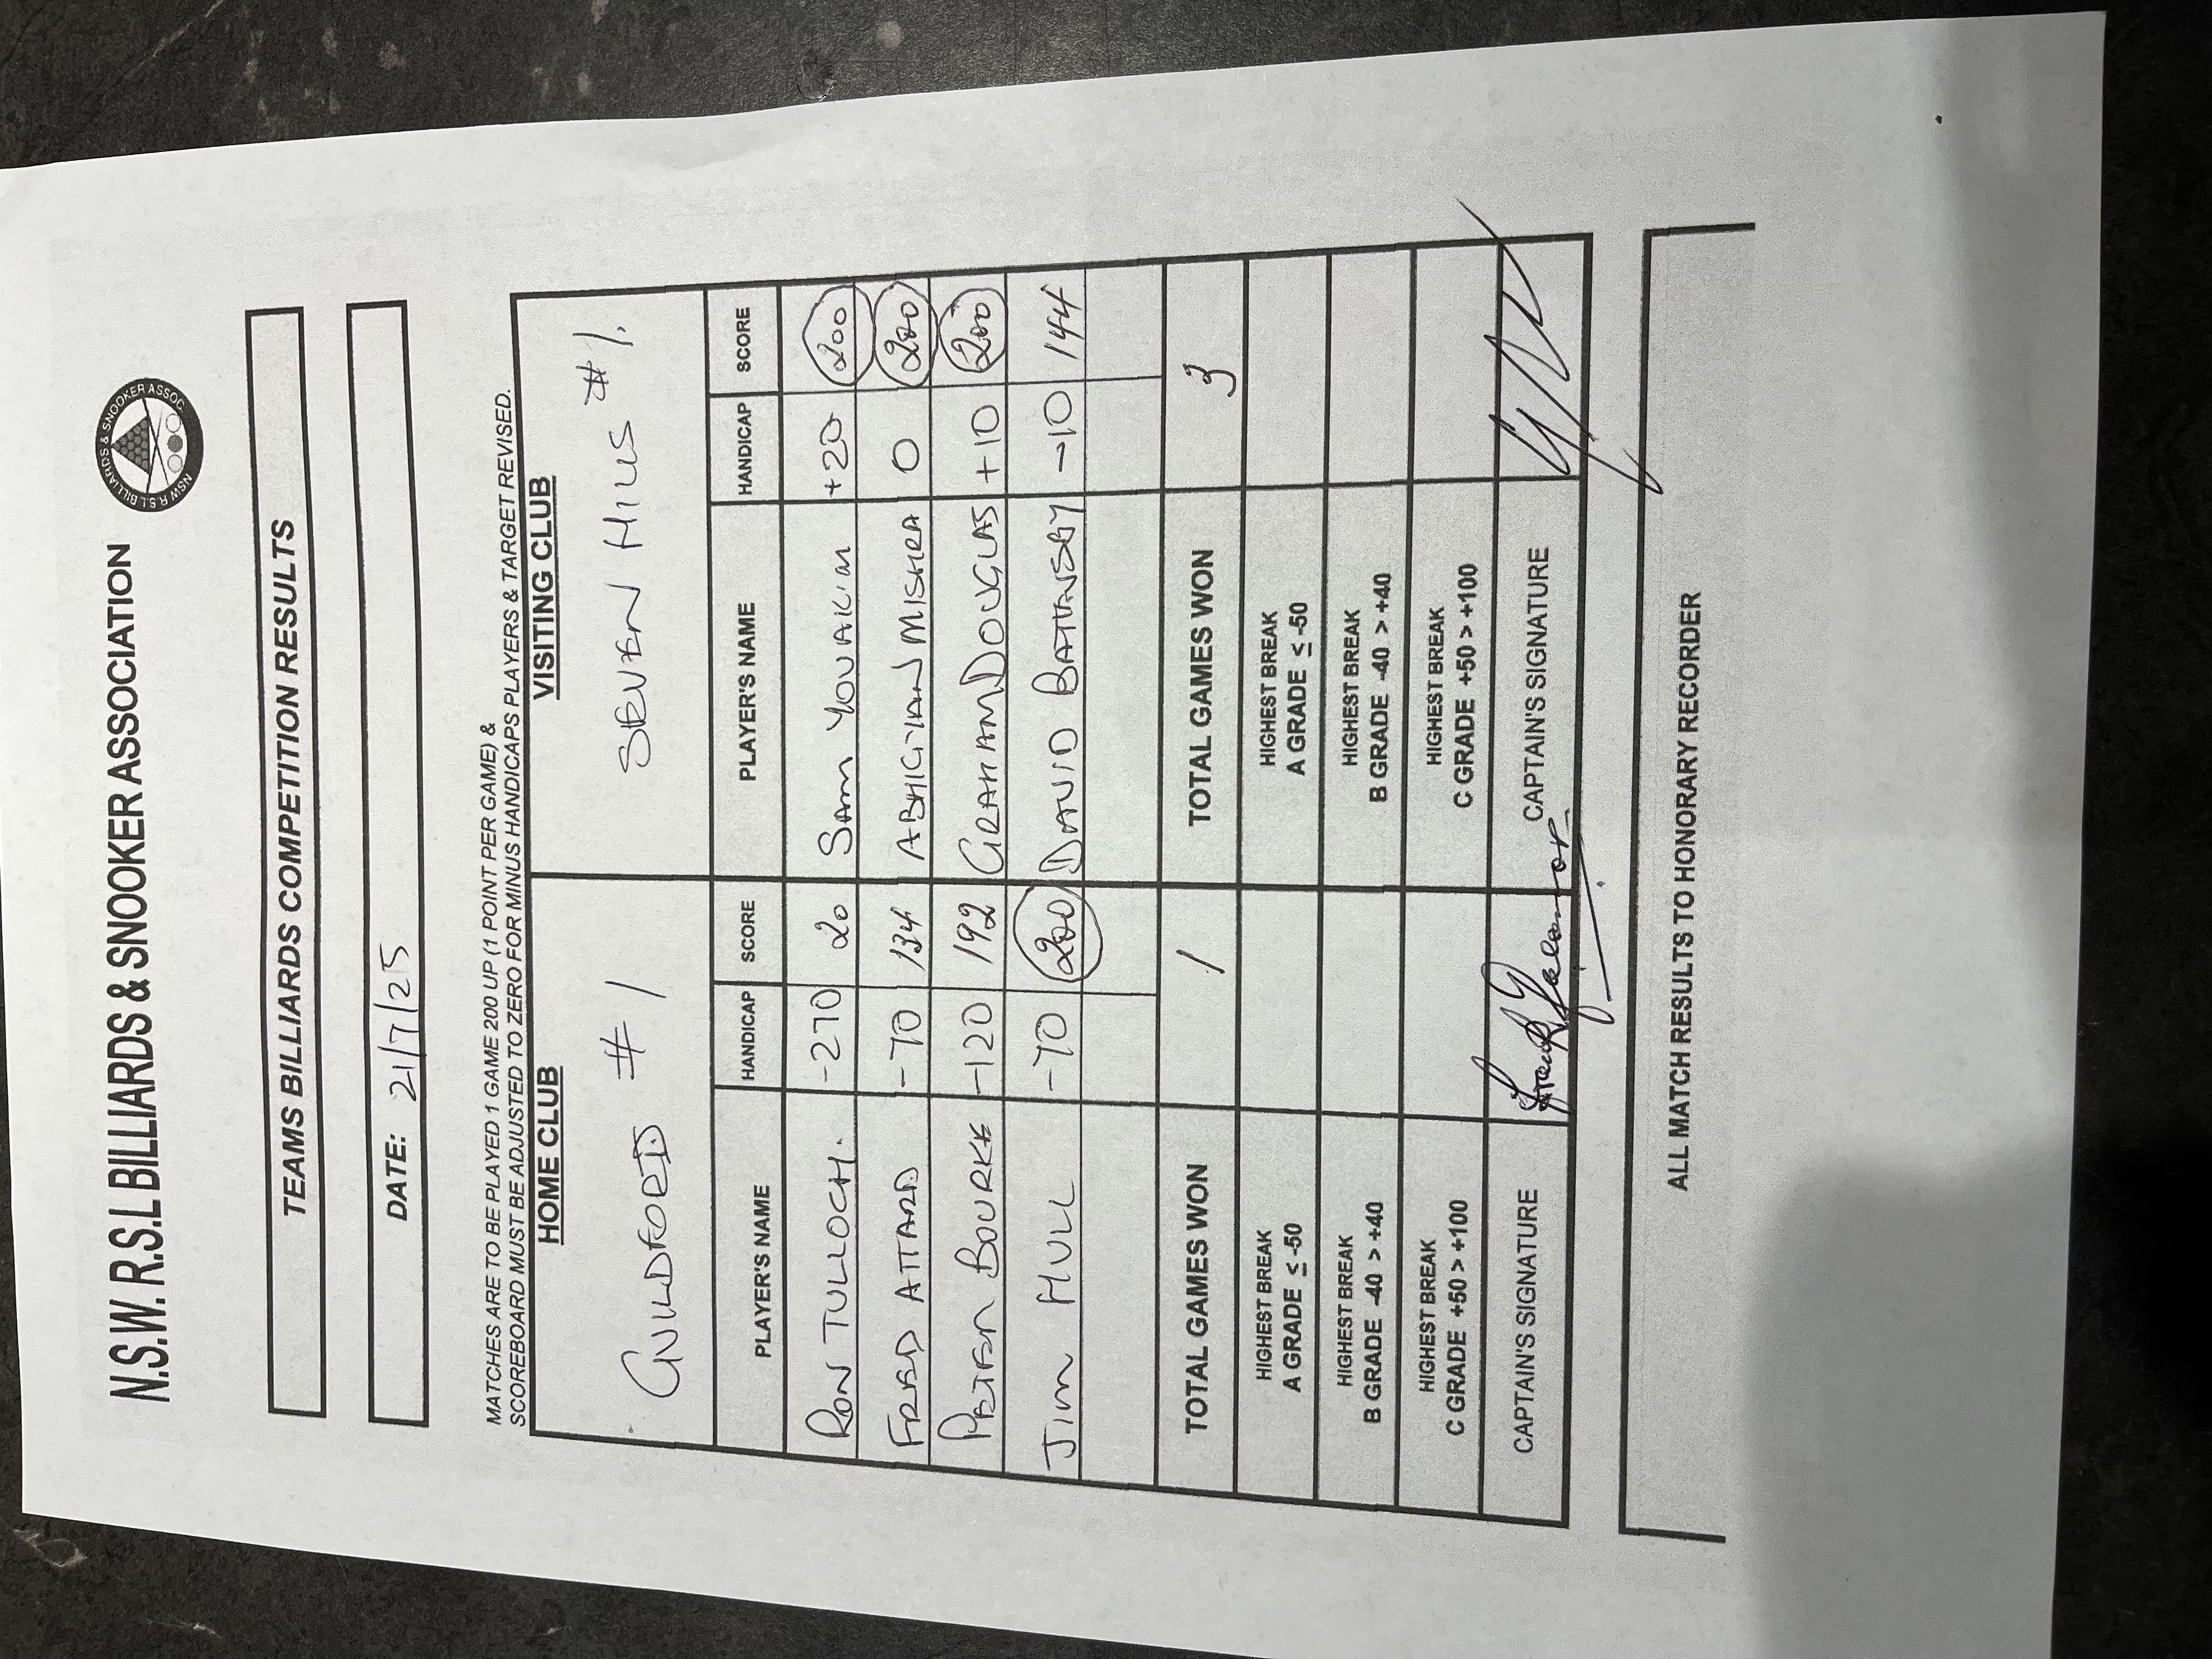 N.S.W. R.S.L BILLIARDS & SNOOKER ASSOCIATION
NSW R.S.L BILLIARDS & SNOOKER ASSOC
TEAMS BILLIARDS COMPETITION RESULTS
DATE: 21/7/25
MATCHES ARE TO BE PLAYED 1 GAME 200 UP (1 POINT PER GAME) &
SCOREBOARD MUST BE ADJUSTED TO ZERO FOR MINUS HANDICAPS PLAYERS & TARGET REVISED.
HOME CLUB VISITING CLUB
GUILDFORD # 1 SEVEN HILLS #1.
PLAYER'S NAME HANDICAP SCORE PLAYER'S NAME HANDICAP SCORE
RON TULLOCH. -270 20 SAM YOUAKIM +20 200
FRED ATTARD -70 134 ABHIGYAN MISHRA 0 200
PETER BOURKE -120 192 GRAHAM DOUGLAS +10 200
JIM HULL -70 200 DAVID BATTNSBY -10 144
TOTAL GAMES WON 1 TOTAL GAMES WON 3
HIGHEST BREAK HIGHEST BREAK
A GRADE ≤ -50 A GRADE ≤ -50
HIGHEST BREAK HIGHEST BREAK
B GRADE -40 > +40 B GRADE -40 > +40
HIGHEST BREAK HIGHEST BREAK
C GRADE +50 > +100 C GRADE +50 > +100
CAPTAIN'S SIGNATURE CAPTAIN'S SIGNATURE
ALL MATCH RESULTS TO HONORARY RECORDER